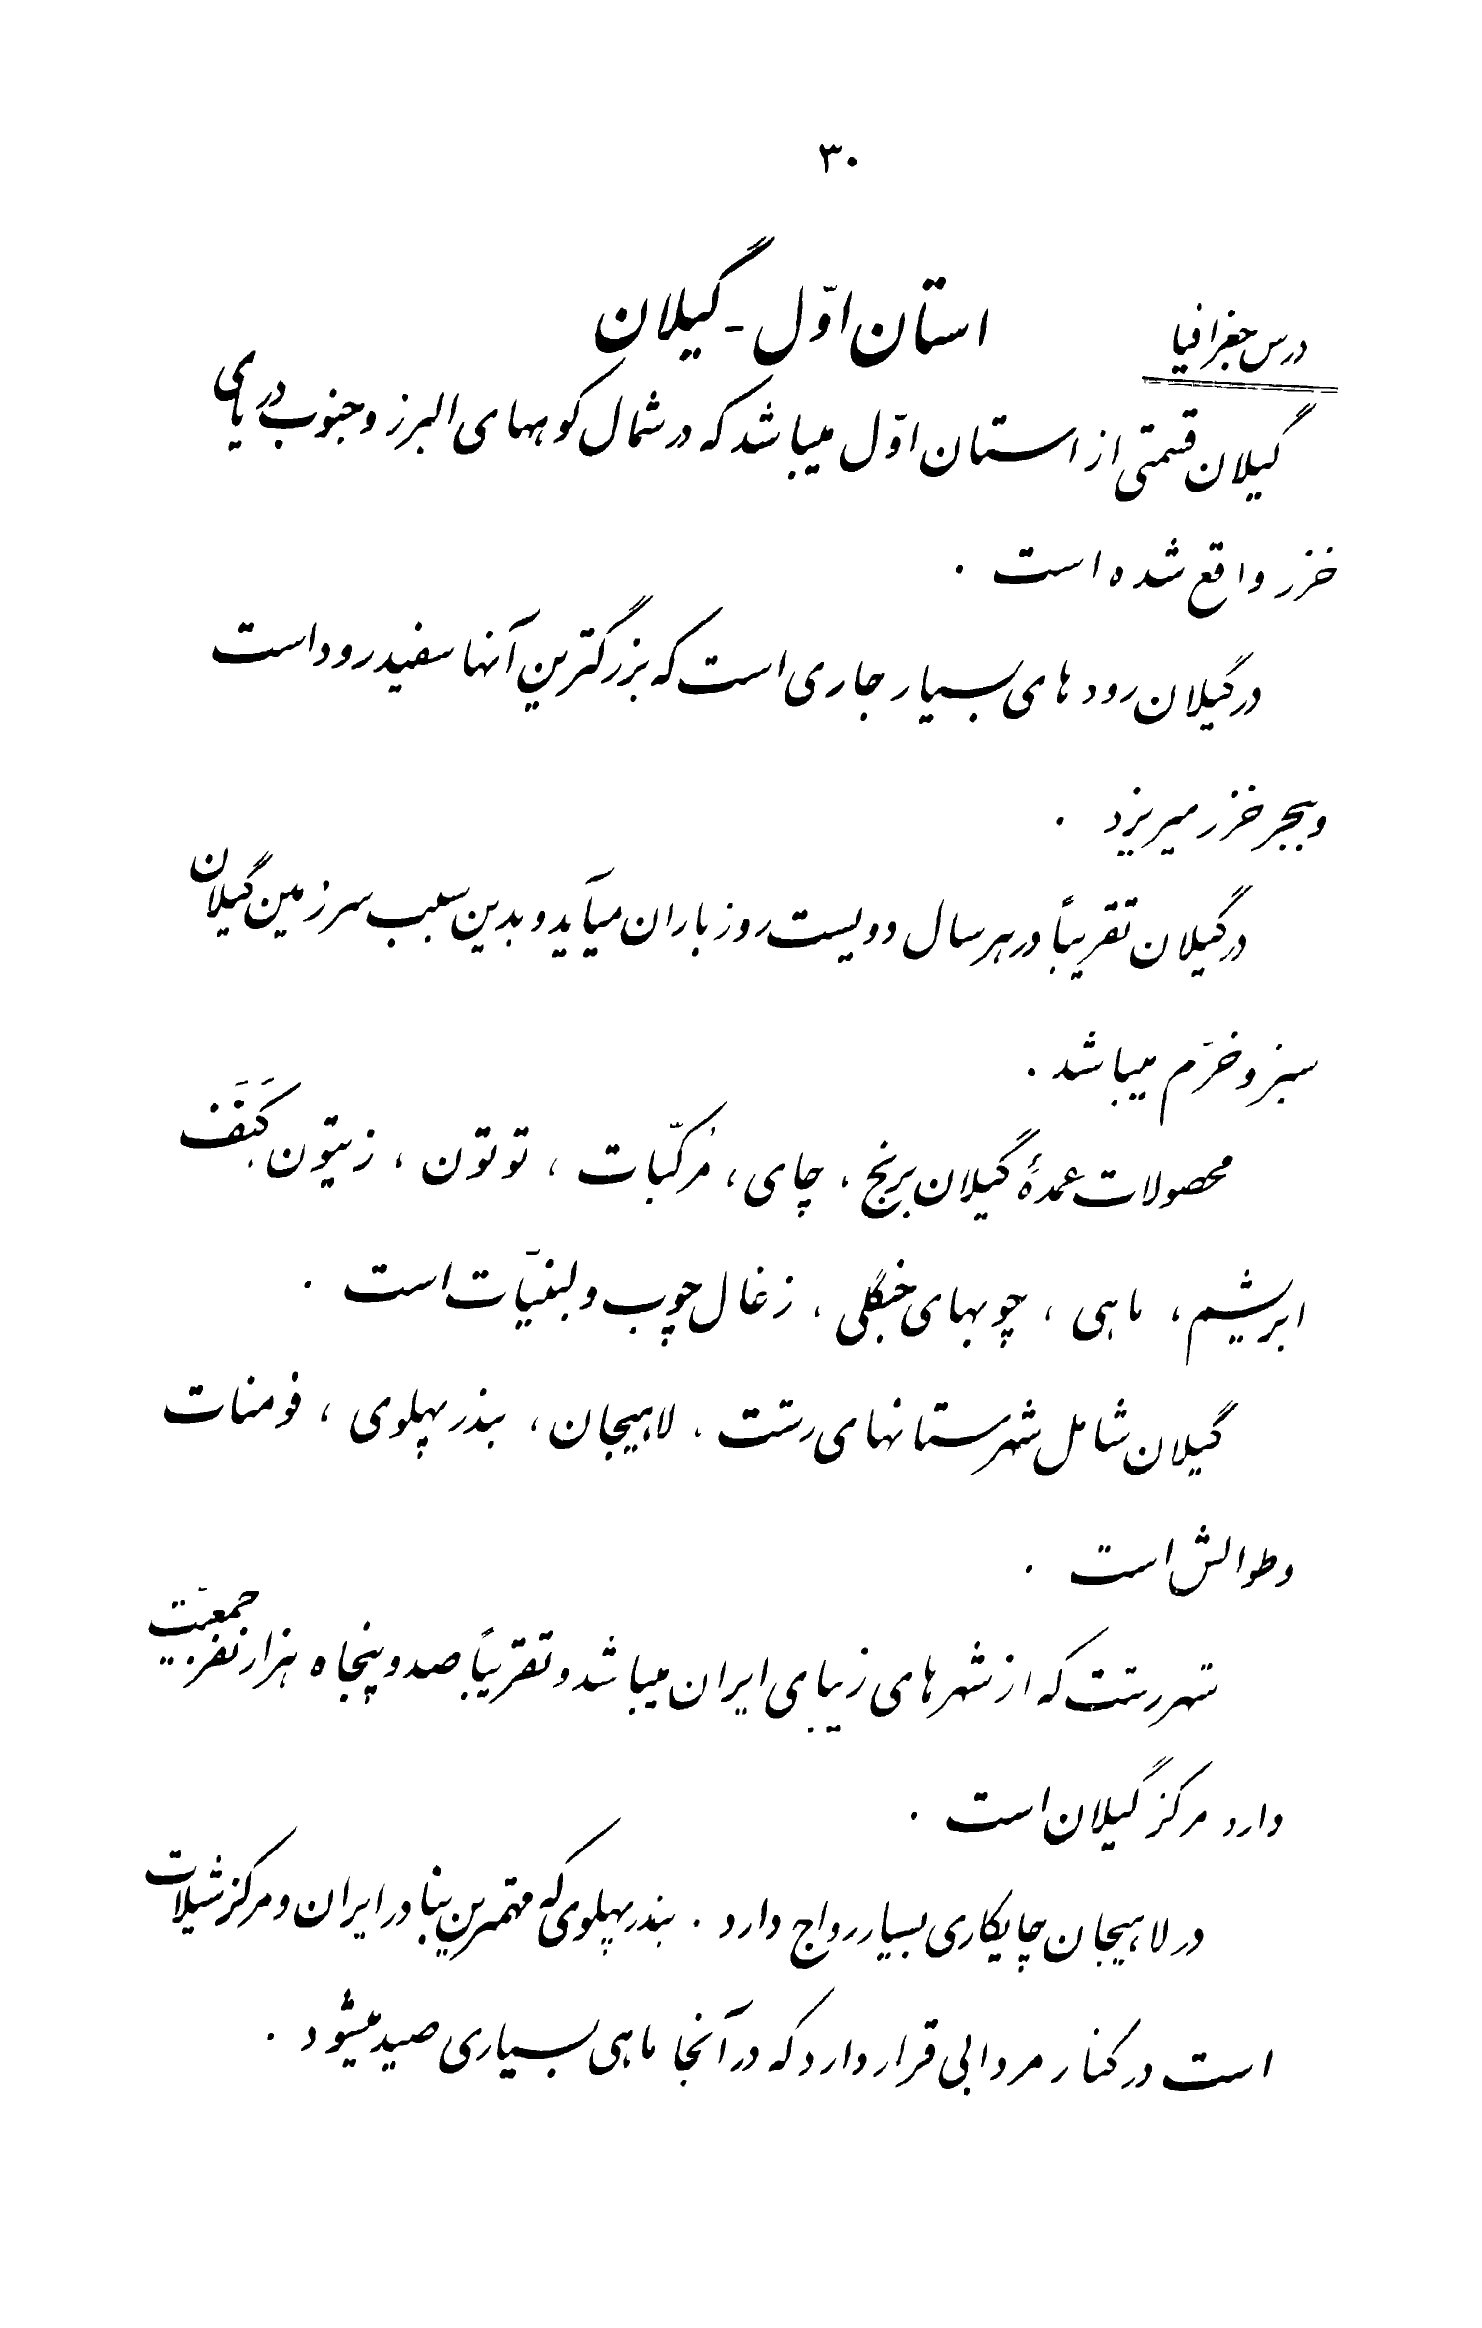 ۳۰
درس جغرافیا
استان اوّل - گیلان
گیلان قسمتی از استان اوّل میباشد که در شمال کوههای البرز و جنوب دریای
خزر واقع شده است .
در گیلان رودهای بسیار جاری است که بزرگترین آنها سفیدرود است
و ببحر خزر میریزد .
در گیلان تقریباً در هر سال دویست روز باران میآید و بدین سبب سرزمین گیلان
سبز و خرّم میباشد .
محصولات عمدهٔ گیلان برنج ، چای ، مُرکّبات ، توتون ، زیتون کَنَف
ابریشم ، ماهی ، چوبهای جنگلی ، زغال چوب و لبنیّات است .
گیلان شامل شهرستانهای رشت ، لاهیجان ، بندر پهلوی ، فومنات
و طوالش است .
شهر رشت که از شهرهای زیبای ایران میباشد و تقریباً صد و پنجاه هزار نفر جمعیّت
دارد مرکز گیلان است .
در لاهیجان چایکاری بسیار رواج دارد . بندر پهلوی که مهمترین بنادر ایران و مرکز شیلات
است در کنار مردابی قرار دارد که در آنجا ماهی بسیاری صید میشود .